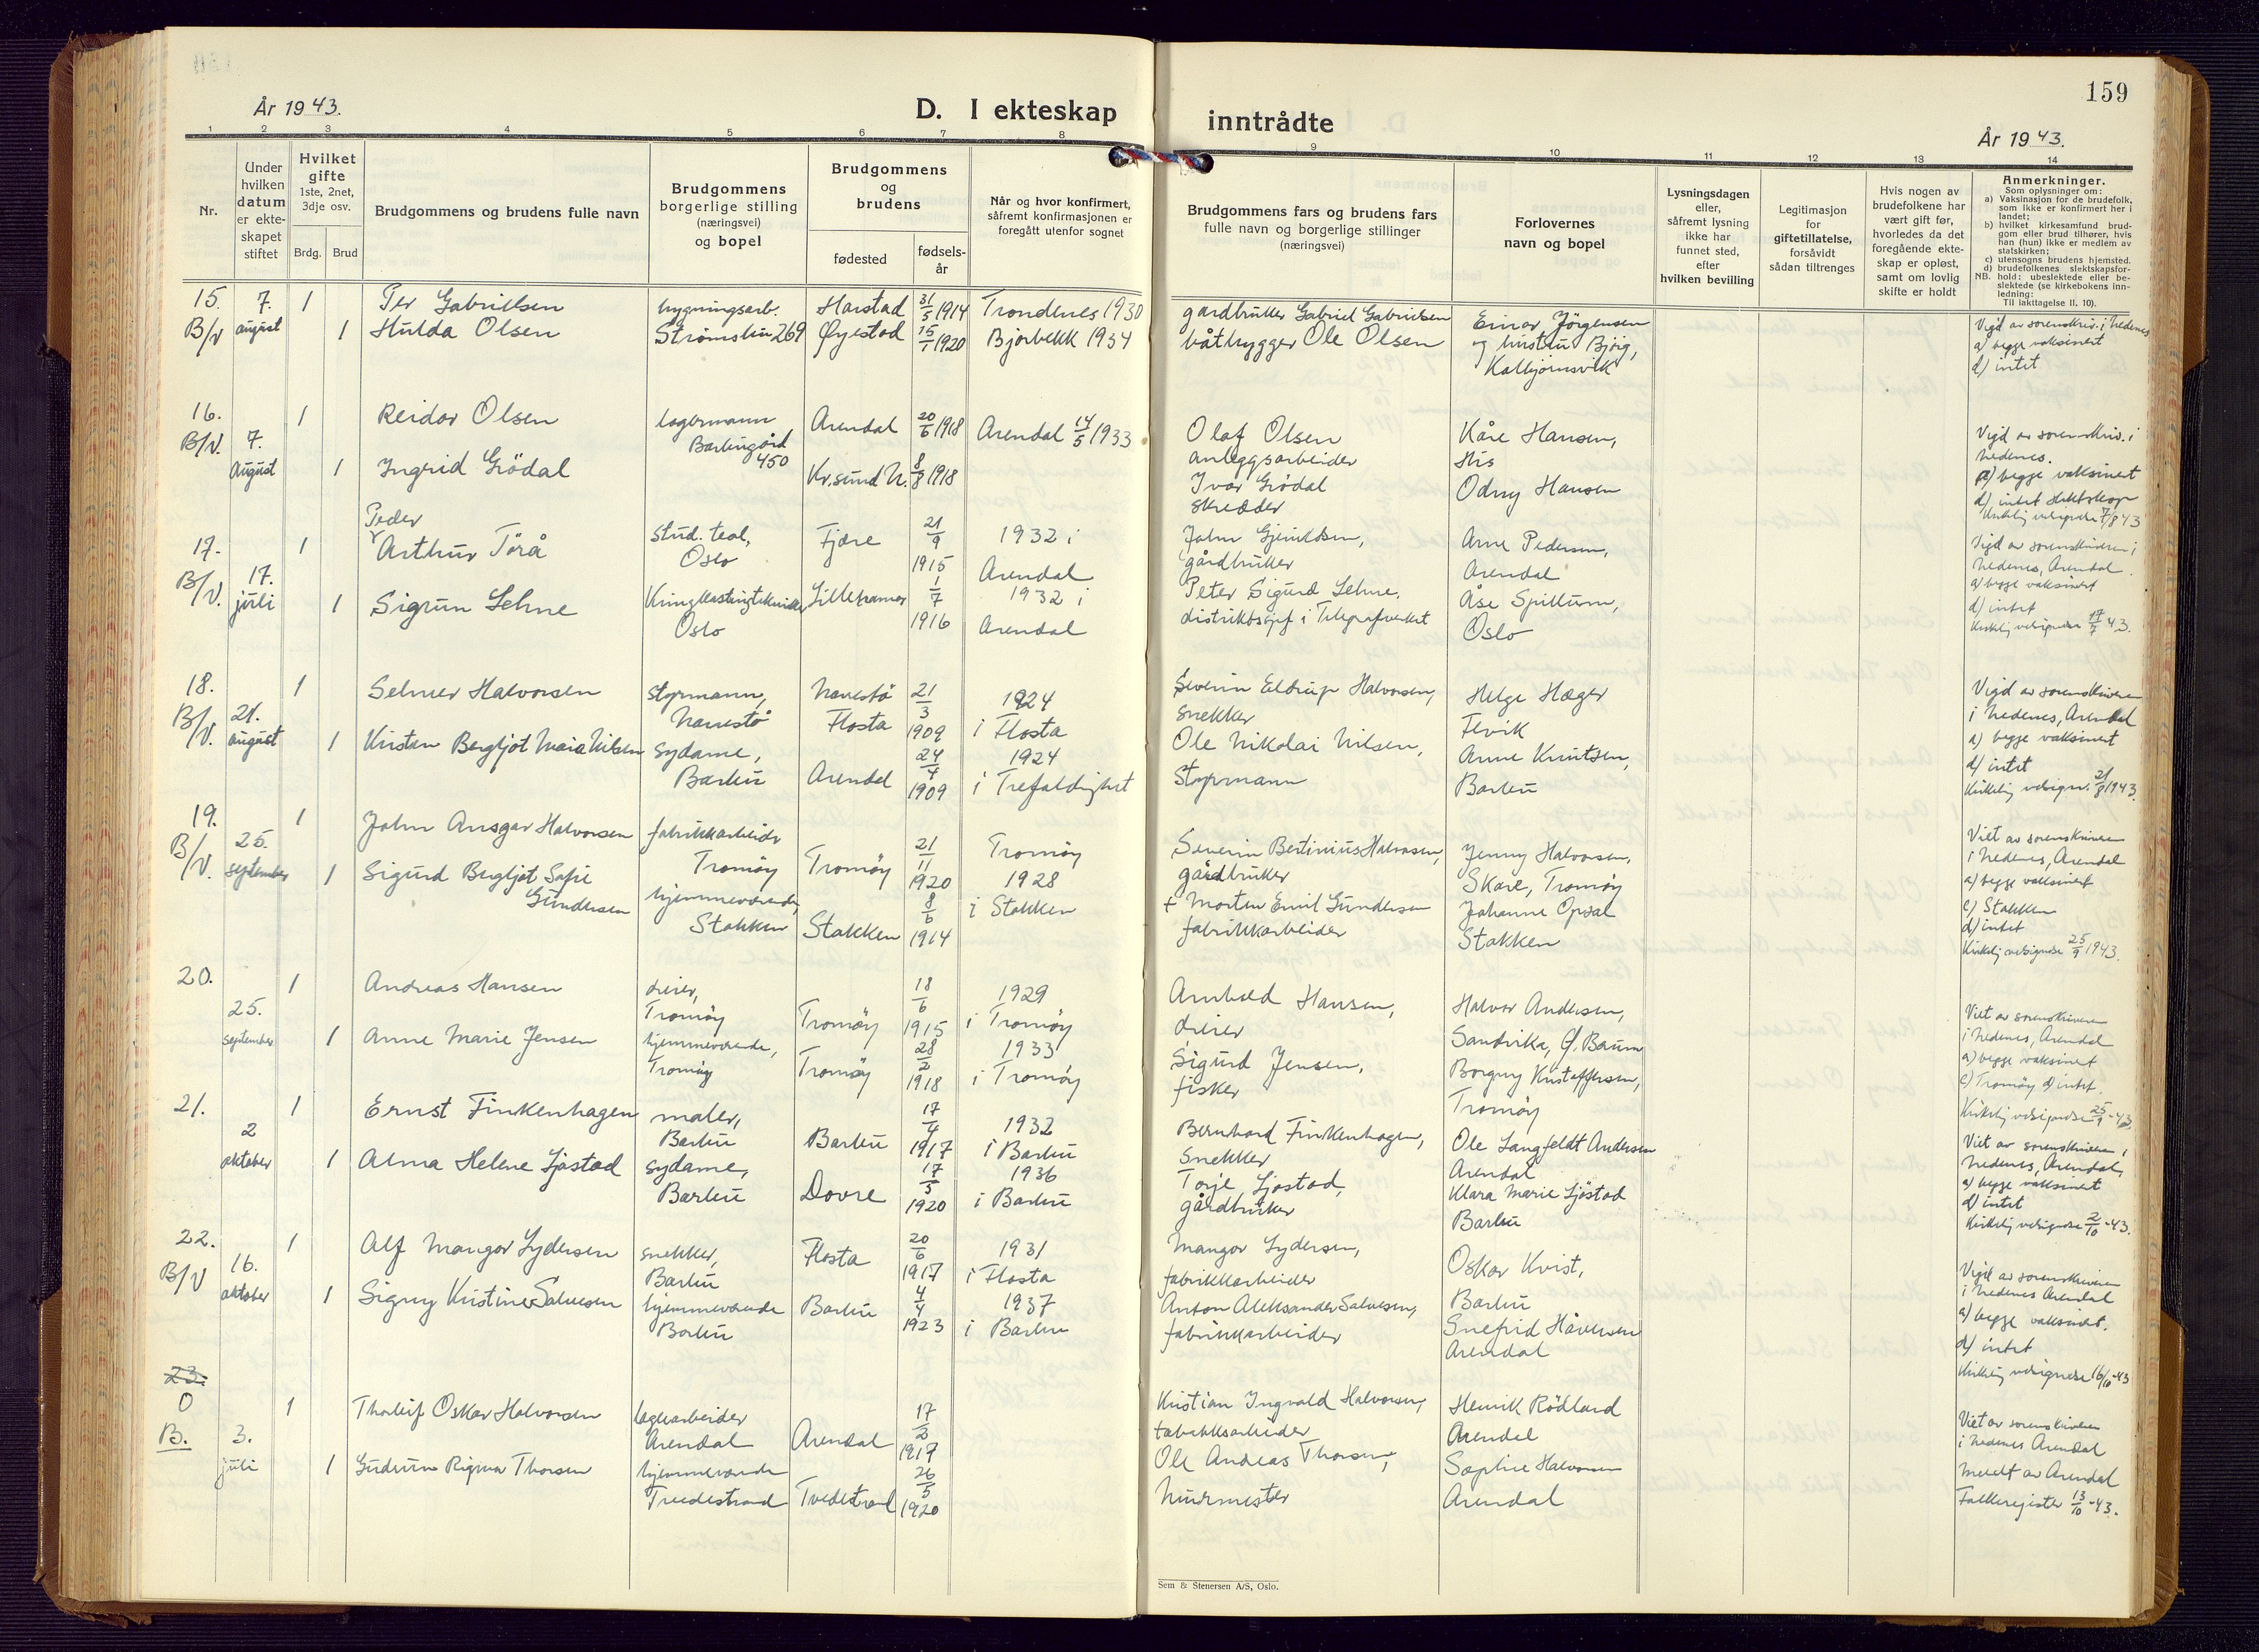 159
År 1943.
D. I ekteskap
inntrådte
År 1943.
1 2 3 4 5 6 7 8
9 10 11 12 13 14
Nr.
Under hvilken datum er ekte-skapet stiftet
Hvilket gifte
1ste, 2net, 3dje osv.
Brdg. Brud
Brudgommens og brudens fulle navn
Brudgommens borgerlige stilling (næringsvei) og bopel
Brudgommens og brudens
fødested
fødsels-år
Når og hvor konfirmert, såfremt konfirmasjonen er foregått utenfor sognet
Brudgommens fars og brudens fars fulle navn og borgerlige stillinger (næringsvei)
Forlovernes navn og bopel
Lysningsdagen eller, såfremt lysning ikke har funnet sted, efter hvilken bevilling
Legitimasjon for giftetillatelse, forsåvidt sådan tiltrenges
Hvis nogen av brudefolkene har vært gift før, hvorledes da det foregående ekte-skap er opløst, samt om lovlig skifte er holdt
Anmerkninger.
Som oplysninger om:
a) Vaksinasjon for de brudefolk, som ikke er konfirmert her i landet;
b) hvilket kirkesamfund brud-gom eller brud tilhører, hvis han (hun) ikke er medlem av statskirken;
c) utensogns brudens hjemsted.
d) brudefolkenes slektskapsfor-hold: ubeslektede eller be-slektede (se kirkebokens inn-ledning:
NB.
Til iakttagelse II, 10).
15. 7. 1 Per Gabrielsen bygningsarb. Harstad 31/5 1914 Trondenes 1930 gårdbruker Gabriel Gabrielsen Einar Jørgensen
B/V august 1 Hulda Olsen Strømsbu 269 Øyestad 15/1 1920 Bjorbekk 1934 båtbygger Ole Olsen og hustru Bjørg,
Kolbjørnsvik
Vigd av sorenskriv. i Nedenes
a) begge vaksinert
d) intet
16. 1 Reidar Olsen lagermann Arendal 20/6 1918 Arendal 14/5 1933 Olaf Olsen Kåre Hansen,
B/V. 7. Barbugård 450 anleggsarbeider His
August 1 Ingrid Grödal Kr.sund N. 8/8 1918 Ivar Grödal Odny Hansen
skredder
Vigd av sorenskriv. i
Nedenes.
a) begge vaksinert
d) intet slektskap
Kirkelig velsignelse 7/8 43
17. 1 Peder Arthur Törå stud. teol, Fjære 21/9 1932 i John Gjeruldsen, Arne Pedersen,
Oslo 1915 Arendal gårdbruker Arendal
B/V. 17. juli 1 Sigrun Lehne Kringkastingtekniker Lillehamar 1/7 1932 i Peter Sigurd Lehne. Åse Spillum,
Oslo 1916 Arendal distriktssjef i Telegrafverket Oslo
Vigd av sorenskriveren i
Nedenes, Arendal.
a) begge vaksinert
d) intet
Kirkelig velsignelse 17/7 43.
18. 1 Selmer Halvorsen styrmann, Narestö 21/3 1924 Severin Eldrup Halvorsen, Helge Hæger
B/V. 21. Narestö Flosta 1909 i Flosta snekker Fevik
august 1 Kirsten Bergljot Maria Nilsen sydame, 24/4 1924 Ole Nikolai Nilsen, Anne Knutsen,
Barbu Arendal 1909 i Trefoldighet Styrmann Barbu
Vigd av sorenskriveren
i Nedenes, Arendal
a) begge vaksinert
d) intet
Kirkelig velsign. 21/8 1943.
19. 1 John Ansgar Halvorsen fabrikkarbeider 21/1 Tromøy Severin Bertinius Halvorsen, Jenny Halvorsen,
B/V. 25. Tromøy Tromøy 1920 1928 gårdbruker Skare, Tromøy
september 1 Sigurd Bergljot Sofie Gundersen hjemmeværende, 8/6 i Stokken + Morten Emil Gundersen Johanne Opsal
Stokken Stokken 1914 fabrikkarbeider Stokken
Viet av sorenskriveren
i Nedenes, Arendal
a) begge vaksinert
c) Stokken
d) intet
Kirkelig velsignelse 25/9 1943.
20. 1 Andreas Hansen dreier, 18/6 1929 Arnhold Hansen, Halvor Andersen,
25. Tromøy Tromøy 1915 i Tromøy dreier Sandvika, P. Bærum
september 1 Anne Marie Jensen hjemmeværende, 28/2 1933 Sigurd Jensen, Borgny Kristoffersen,
Tromøy Tromøy 1918 i Tromøy fisker Tromøy
Viet av sorenskriveren
i Nedenes, Arendal
a) begge vaksinert
c) Tromøy d) intet.
Kirkelig velsignelse 25/9-43
21. 1 Ernst Finkenhagen maler, 17/4 1932 Bernhard Finkenhagen, Ole Langfeldt Andersen
2 Barbu Barbu 1917 i Barbu snekker Arendal
oktober 1 Alma Helene Sjøstad sydame, 17/5 1936 Torje Sjøstad, Klara Marie Sjøstad
Barbu Dovre 1920 i Barbu gårdbruker Barbu
Viet av sorenskriveren i
Nedenes, Arendal,
a) begge vaksinert
d) intet
Kirkelig velsignelse 2/10-43.
22. 1 Alf Mangor Lydersen snekker, Flosta 20/6 1931 Mangor Lydersen, Oskar Kvist,
B/V 16. Barbu 1917 i Flosta fabrikkarbeider Barbu
oktober 1 Signy Kristine Salvesen hjemmeværende Barbu 4/4 1937 Anton Aleksander Salvesen, Snefrid Håversen
Barbu 1923 i Barbu fabrikkarbeider Arendal
Vigd av sorenskriveren
i Nedenes Arendal
a) begge vaksinert.
d) intet
Kirkelig velsignelse 16/10-43
23.
0 1 Thorleif Oskar Halvorsen lagerarbeider 17/2 Kristian Ingvald Halvorsen, Henrik Rödland
B. 3. Arendal Arendal 1917 fabrikkarbeider Arendal
juli 1 Gudrun Rigmor Thorsen hjemmeværende 26/5 Ole Andreas Thorsen, Sophie Halvorsen
Tvedestrand Tvedestrand 1920 Murmester Arendal
Viet av sorenskriveren
i Nedenes Arendal
Meldt av Arendal
Folkeregister 13/10-43.
Sem & Stenersen A/S, Oslo.